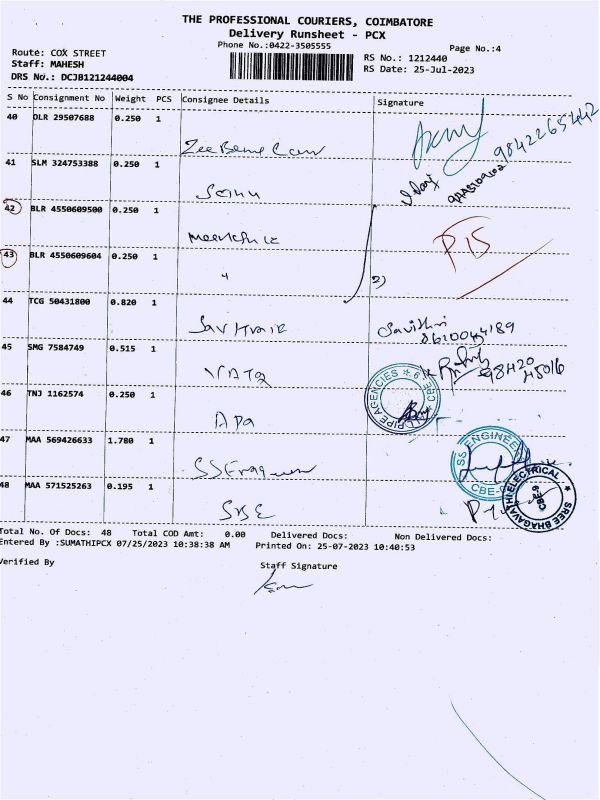 THE PROFESSIONAL COURIERS, COIMBATORE
Delivery Runsheet - PCX
Phone No.:0422-3505555
Page No.:4
Route: COX STREET
RS No.: 1212440
Staff: MAHESH
RS Date: 25-Jul-2023
DRS No.: DCJB121244004
S No Consignment No Weight PCS Consignee Details Signature
40 DLR 29507688 0.250 1
9842265442
41 SLM 324753388 0.250 1
Somu
42 BLR 4550609500 0.250 1
P15
43 BLR 4550609604 0.250 1
"
2)
44 TCG 50431800 0.820 1
Savithri
8610044189
45 SMG 7584749 0.515 1
98420
45016
46 TNJ 1162574 0.250 1
Apa
PIPE AGENCIES
47 MAA 569426633 1.780 1
SS Engineers
SS ENGINEE
CBE-
48 MAA 571525263 0.195 1
SBE
SREE BHAGAVATHI ELECTRICAL
CBE9
Total No. Of Docs: 48 Total COD Amt: 0.00 Delivered Docs: Non Delivered Docs:
Entered By :SUMATHIPCX 07/25/2023 10:38:38 AM Printed On: 25-07-2023 10:40:53
Verified By Staff Signature